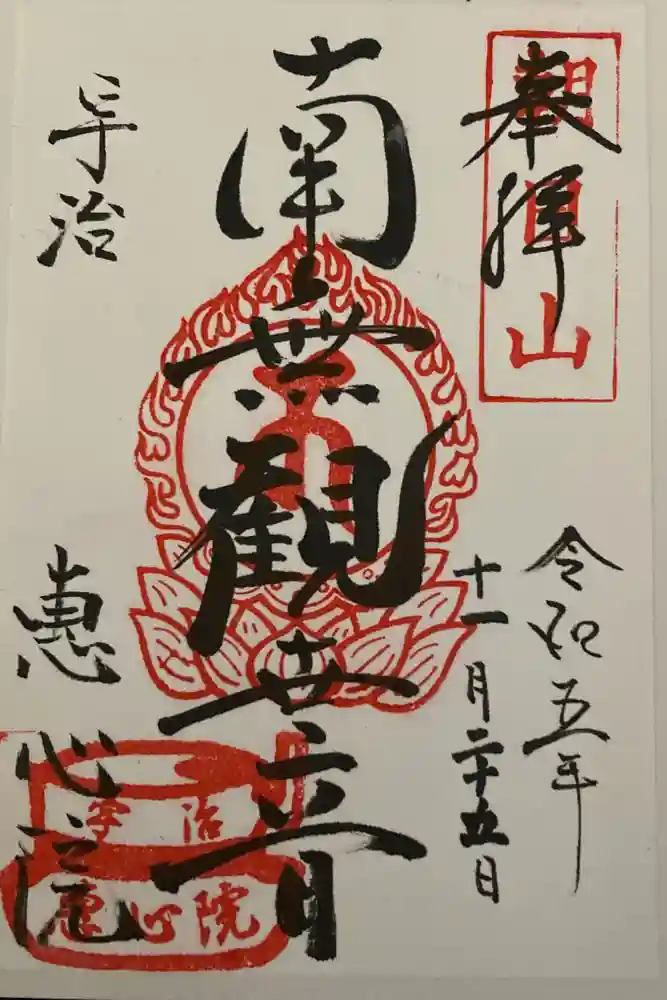 奉拝
朝日山
令和五年
十一月二十五日
南無觀世音
宇治
惠心院
宇治
惠心院